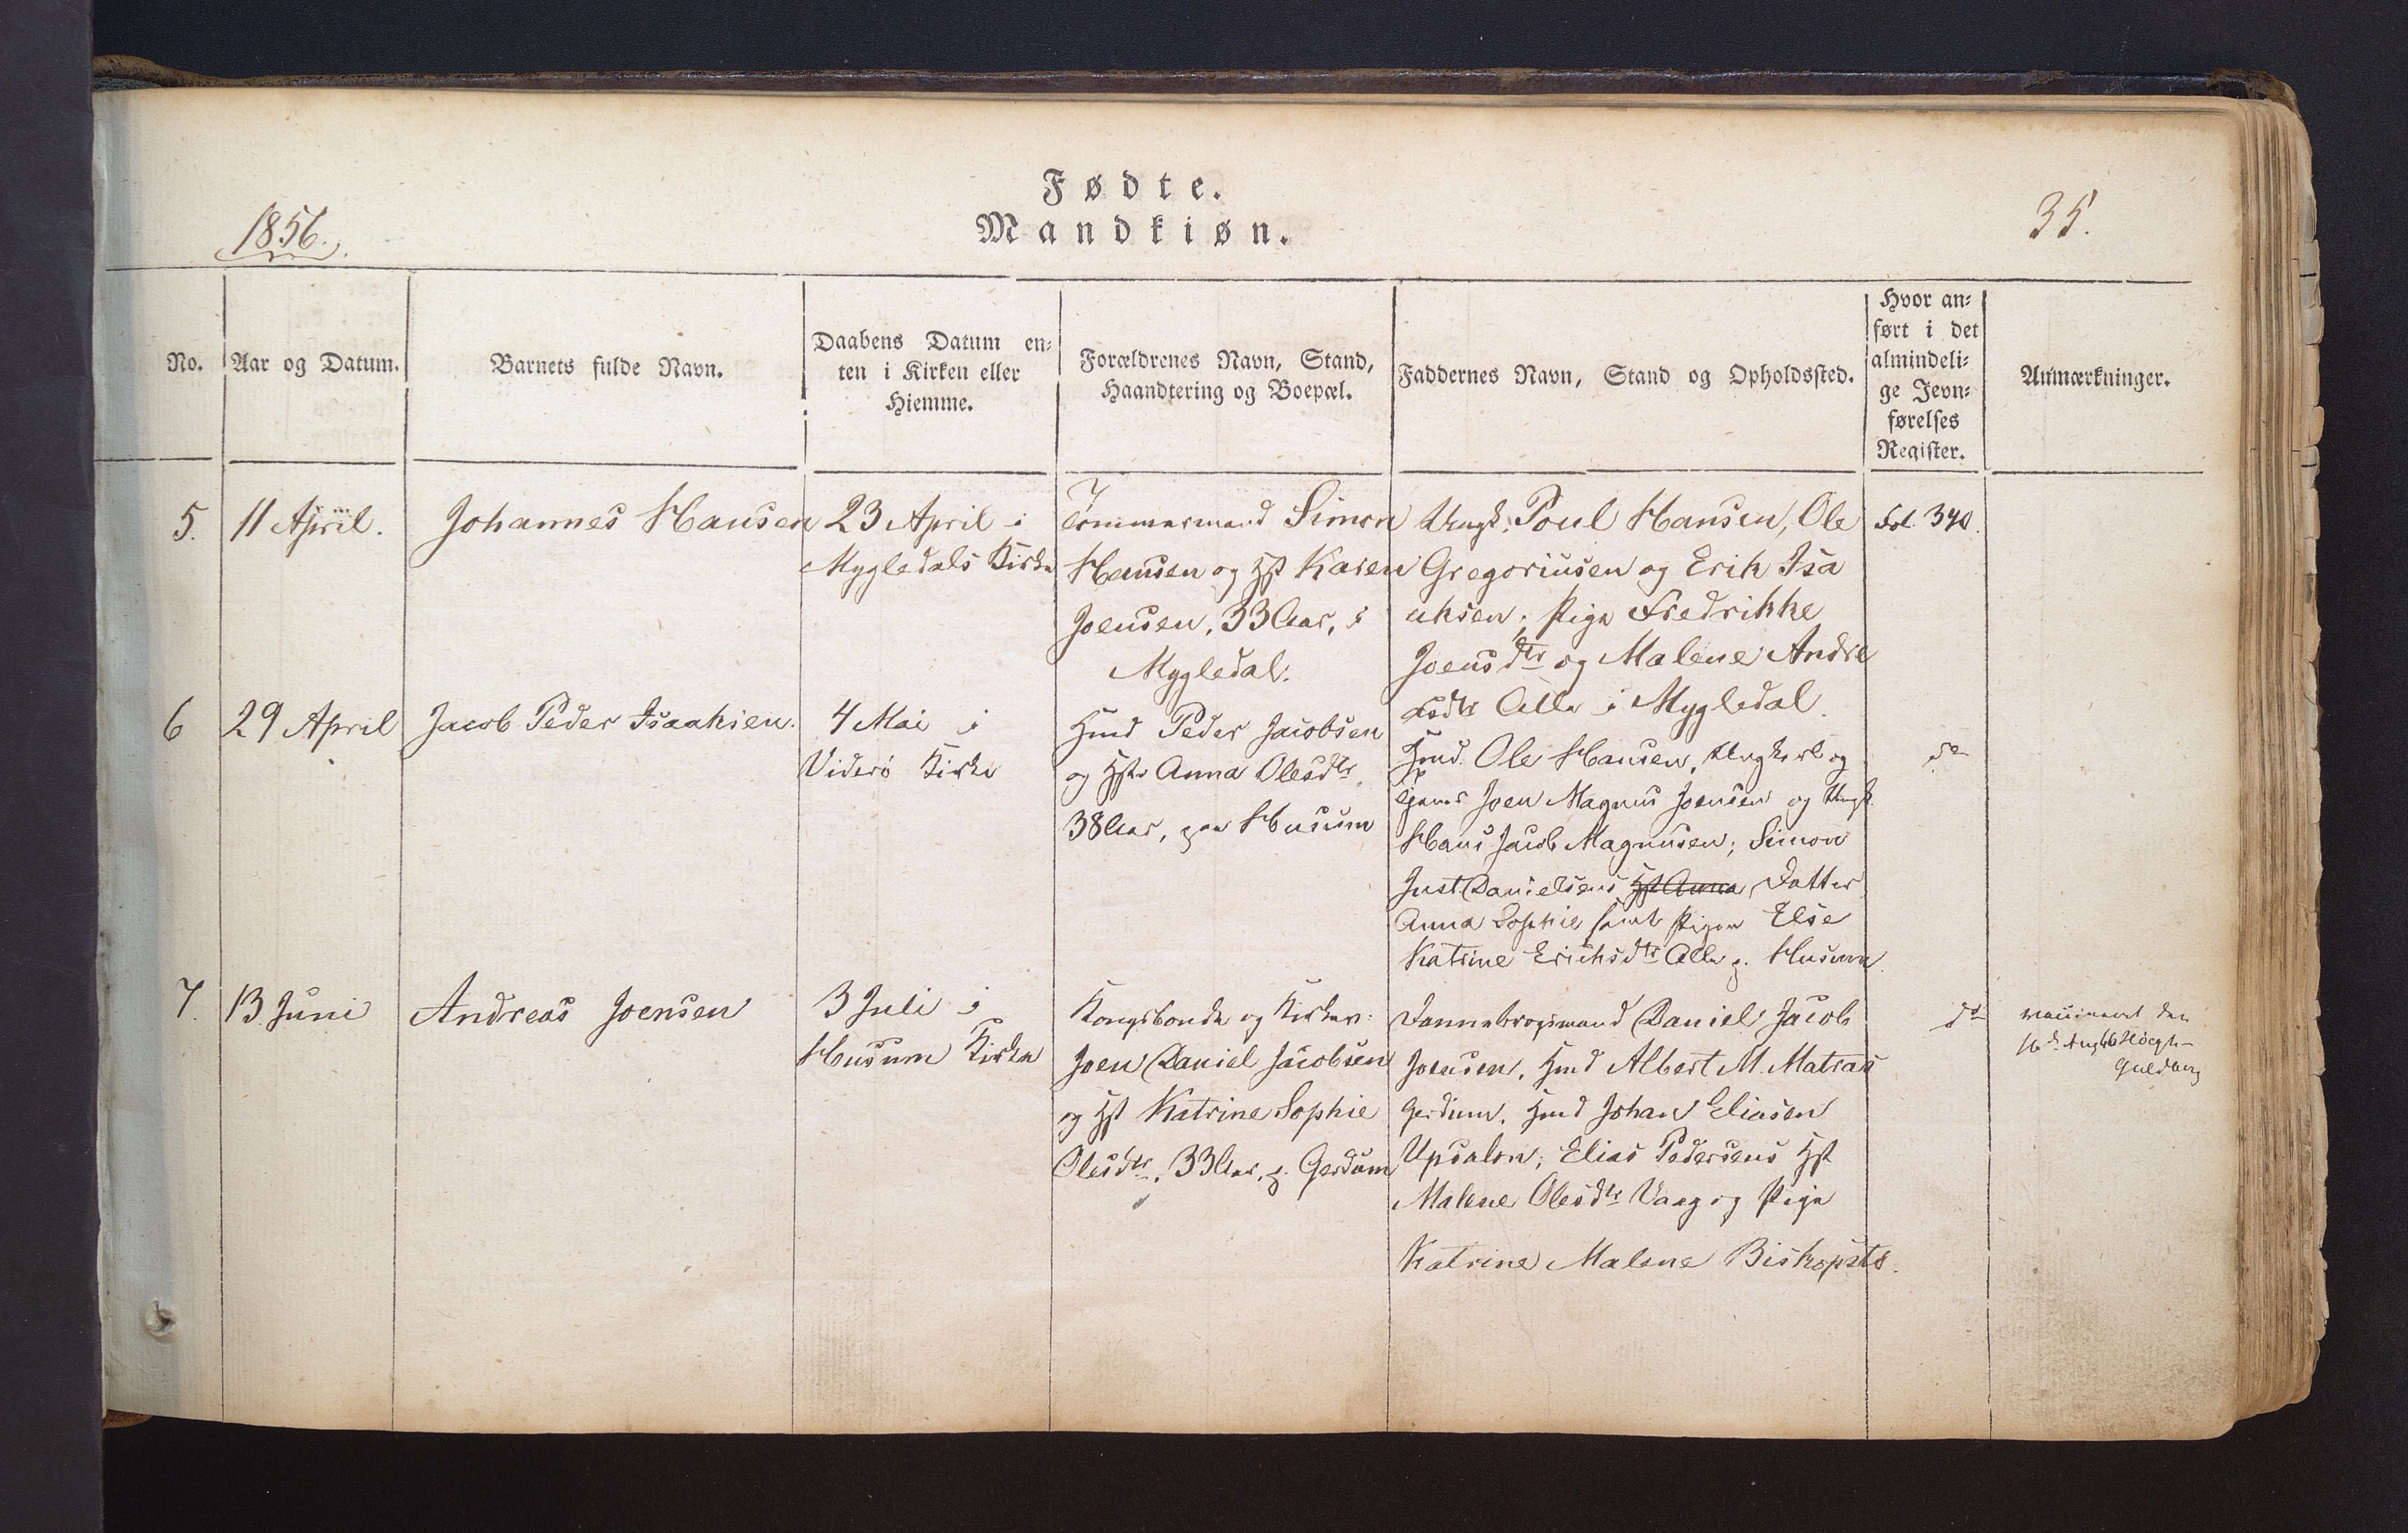 Fødte.
Mandkiøn.
1856.
35.
No.
Aar og Datum.
Barnets fulde Navn.
Daabens Datum en-
ten i Kirken eller
Hiemme.
Forældrenes Navn, Stand,
Haandtering og Boepæl.
Faddernes Navn, Stand og Opholdssted.
Hvor an-
ført i det
almindeli-
ge Jevn-
førelses
Register.
Anmærkninger.
5.
11 April.
Johannes Hansen
23 April i
Mygledals Kirke
Tömmermand Simon
Hansen og Hst Karen
Joensen, 33 Aar, i
Mygledal.
Ungk. Poul Hansen, Ole
Gregoriusen og Erik Isa
aksen; Pige Fredrikke
Joensdtr og Malene Andre
asdtr Alle i Mygledal.
Fol. 340.
6
29 April
Jacob Peder Isaaksen.
4 Mai i
Viderö Kirke
Hmd Peder Jacobsen
og Hstr Anna Olesdtr,
38 Aar, paa Husum
Hmd. Ole Hansen, Ungkarl og
Joen Magnus Joensen og Ungk.
Hans Jacob Magnusen; Simon
Just Danielsens Hst Anna Datter
Anna Sophie samt Pigen Else
Katrine Erichsdtr Alle p. Husum.
do
7.
13 Juni
Andreas Joensen
3 Juli i
Husum Kirke
Kongsbonde og Kirkev:
Joen Daniel Jacobsen
og Hst Katrine Sophie
Olesdtr, 33 Aar, p. Gerdum
Dannebrogsmand Daniel Jacob
Joensen, Hmd Albert M. Matras
Gerdum, Hmd Johan Eliasen
Upsalon; Elias Pedersens Hst
Malene Olesdtr Vaag og Pige
Katrine Malene Biskopstö.
do
vaccineret den
16de Aug 66 Höegh-
Guldberg